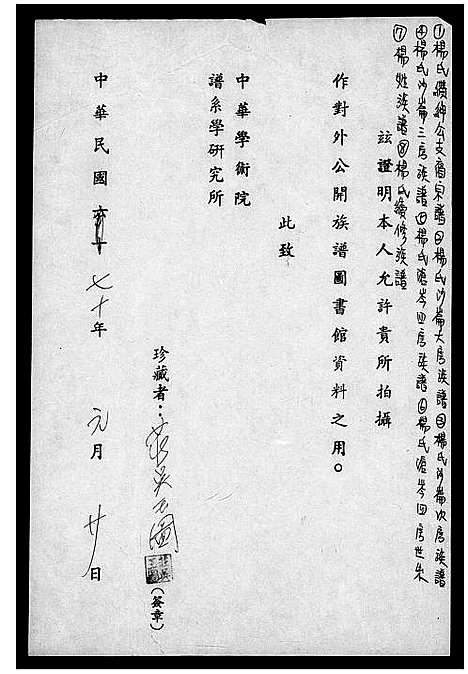 ①楊氏纘紳公支裔宗譜②楊氏沙崙大房族譜③楊氏沙崙次房族譜
④楊氏沙崙三房族譜⑤楊氏滄岑四房族譜⑥楊氏滄岑四房世系
⑦楊姓族譜⑧楊氏續修族譜
茲證明本人允許貴所拍攝
作對外公開族譜圖書館資料之用。
此致
中華學術院
譜系學研究所
珍藏者：
(簽章)
中華民國 七十年 元月 廿日